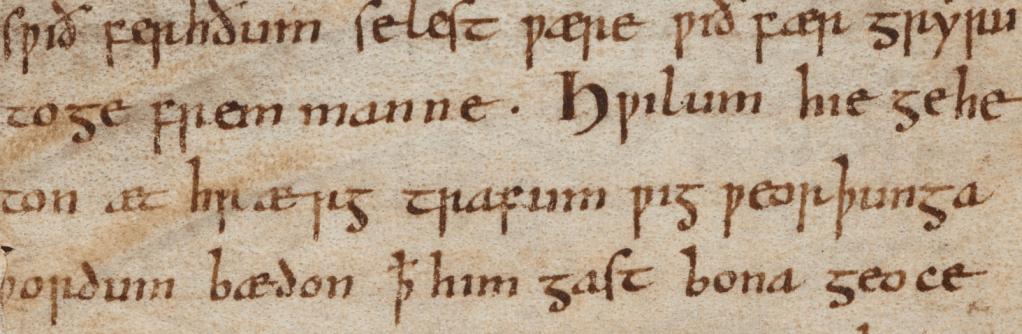 sƿið ferhðum selest ƿære ƿið fær gryru
to ge frem manne. Hƿilum hie gehe
ton æt hrærg trafum ƿig ƿeorþunga
ƿordum bædon ꝥ him gast bona geoce